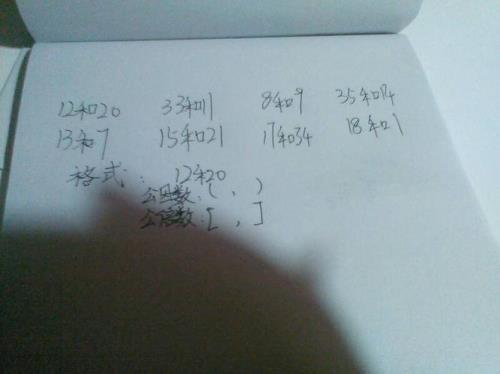 12和20 33和11 8和9 35和14
13和7 15和21 17和34 18和1
格式: 12和20
公因数:( , )
公倍数:[ , ]